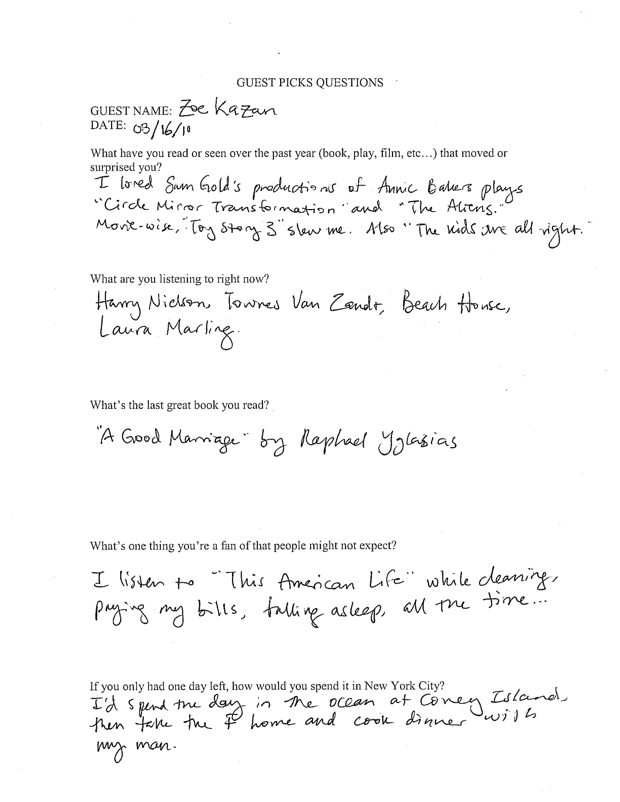 GUEST PICKS QUESTIONS
GUEST NAME: Zoe Kazan
DATE: 03/16/10
What have you read or seen over the past year (book, play, film, etc…) that moved or
surprised you?
I loved Sam Gold's productions of Annie Bakers plays
"Circle Mirror Transformation" and "The Aliens."
Movie-wise, "Toy Story 3" slew me. Also "The kids are all right."
What are you listening to right now?
Harry Nielson, Townes Van Zandt, Beach House,
Laura Marling.
What's the last great book you read?
"A Good Marriage" by Raphael Yglasias
What's one thing you're a fan of that people might not expect?
I listen to "This American Life" while cleaning,
paying my bills, falling asleep, all the time...
If you only had one day left, how would you spend it in New York City?
I'd spend the day in the ocean at Coney Island,
then take the F home and cook dinner with
my man.